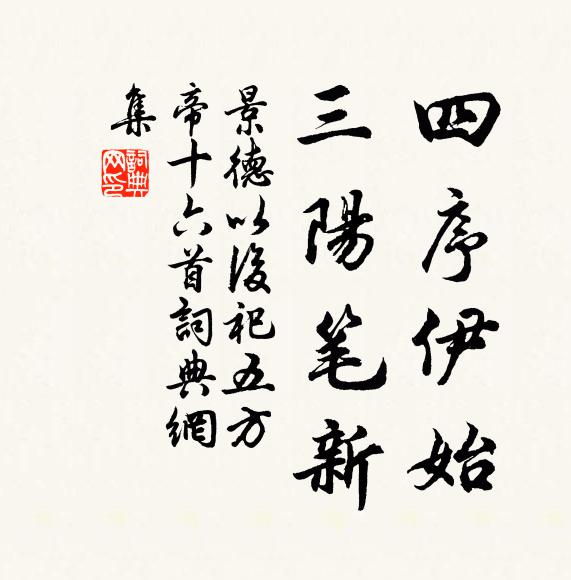 四序伊始
三陽笔新
景德以後祀五方
帝十六首詞典網
集
詞典网印